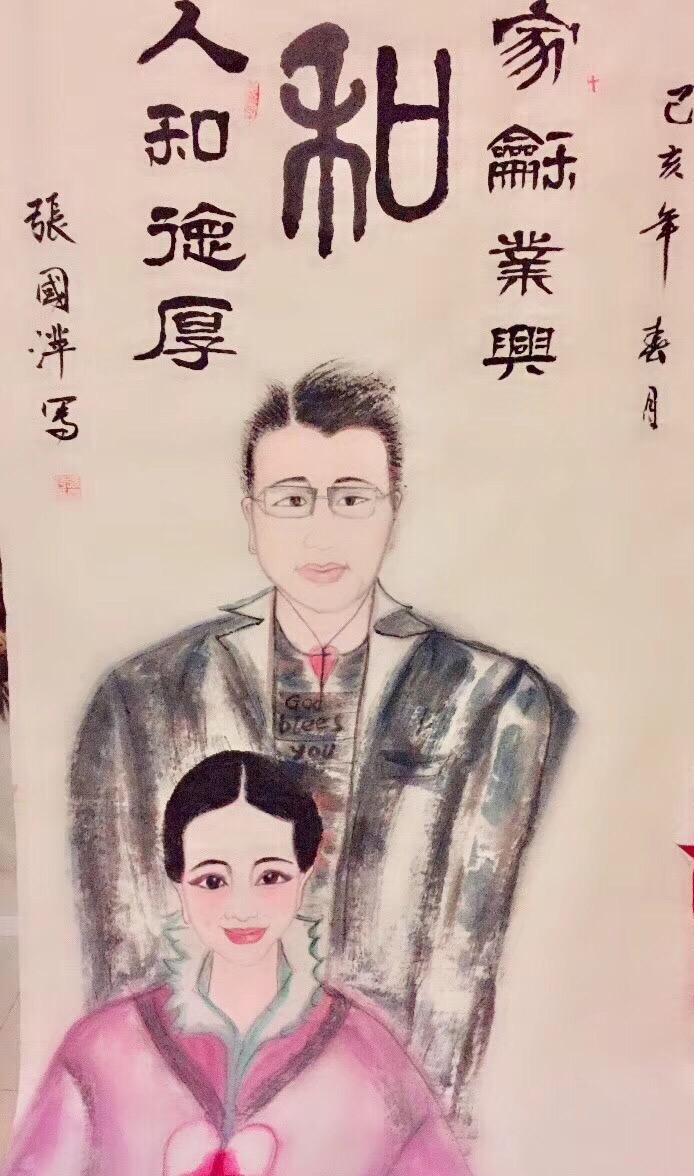 己亥年春月
家龢業興
和
人和德厚
張國 写
God
blees
you